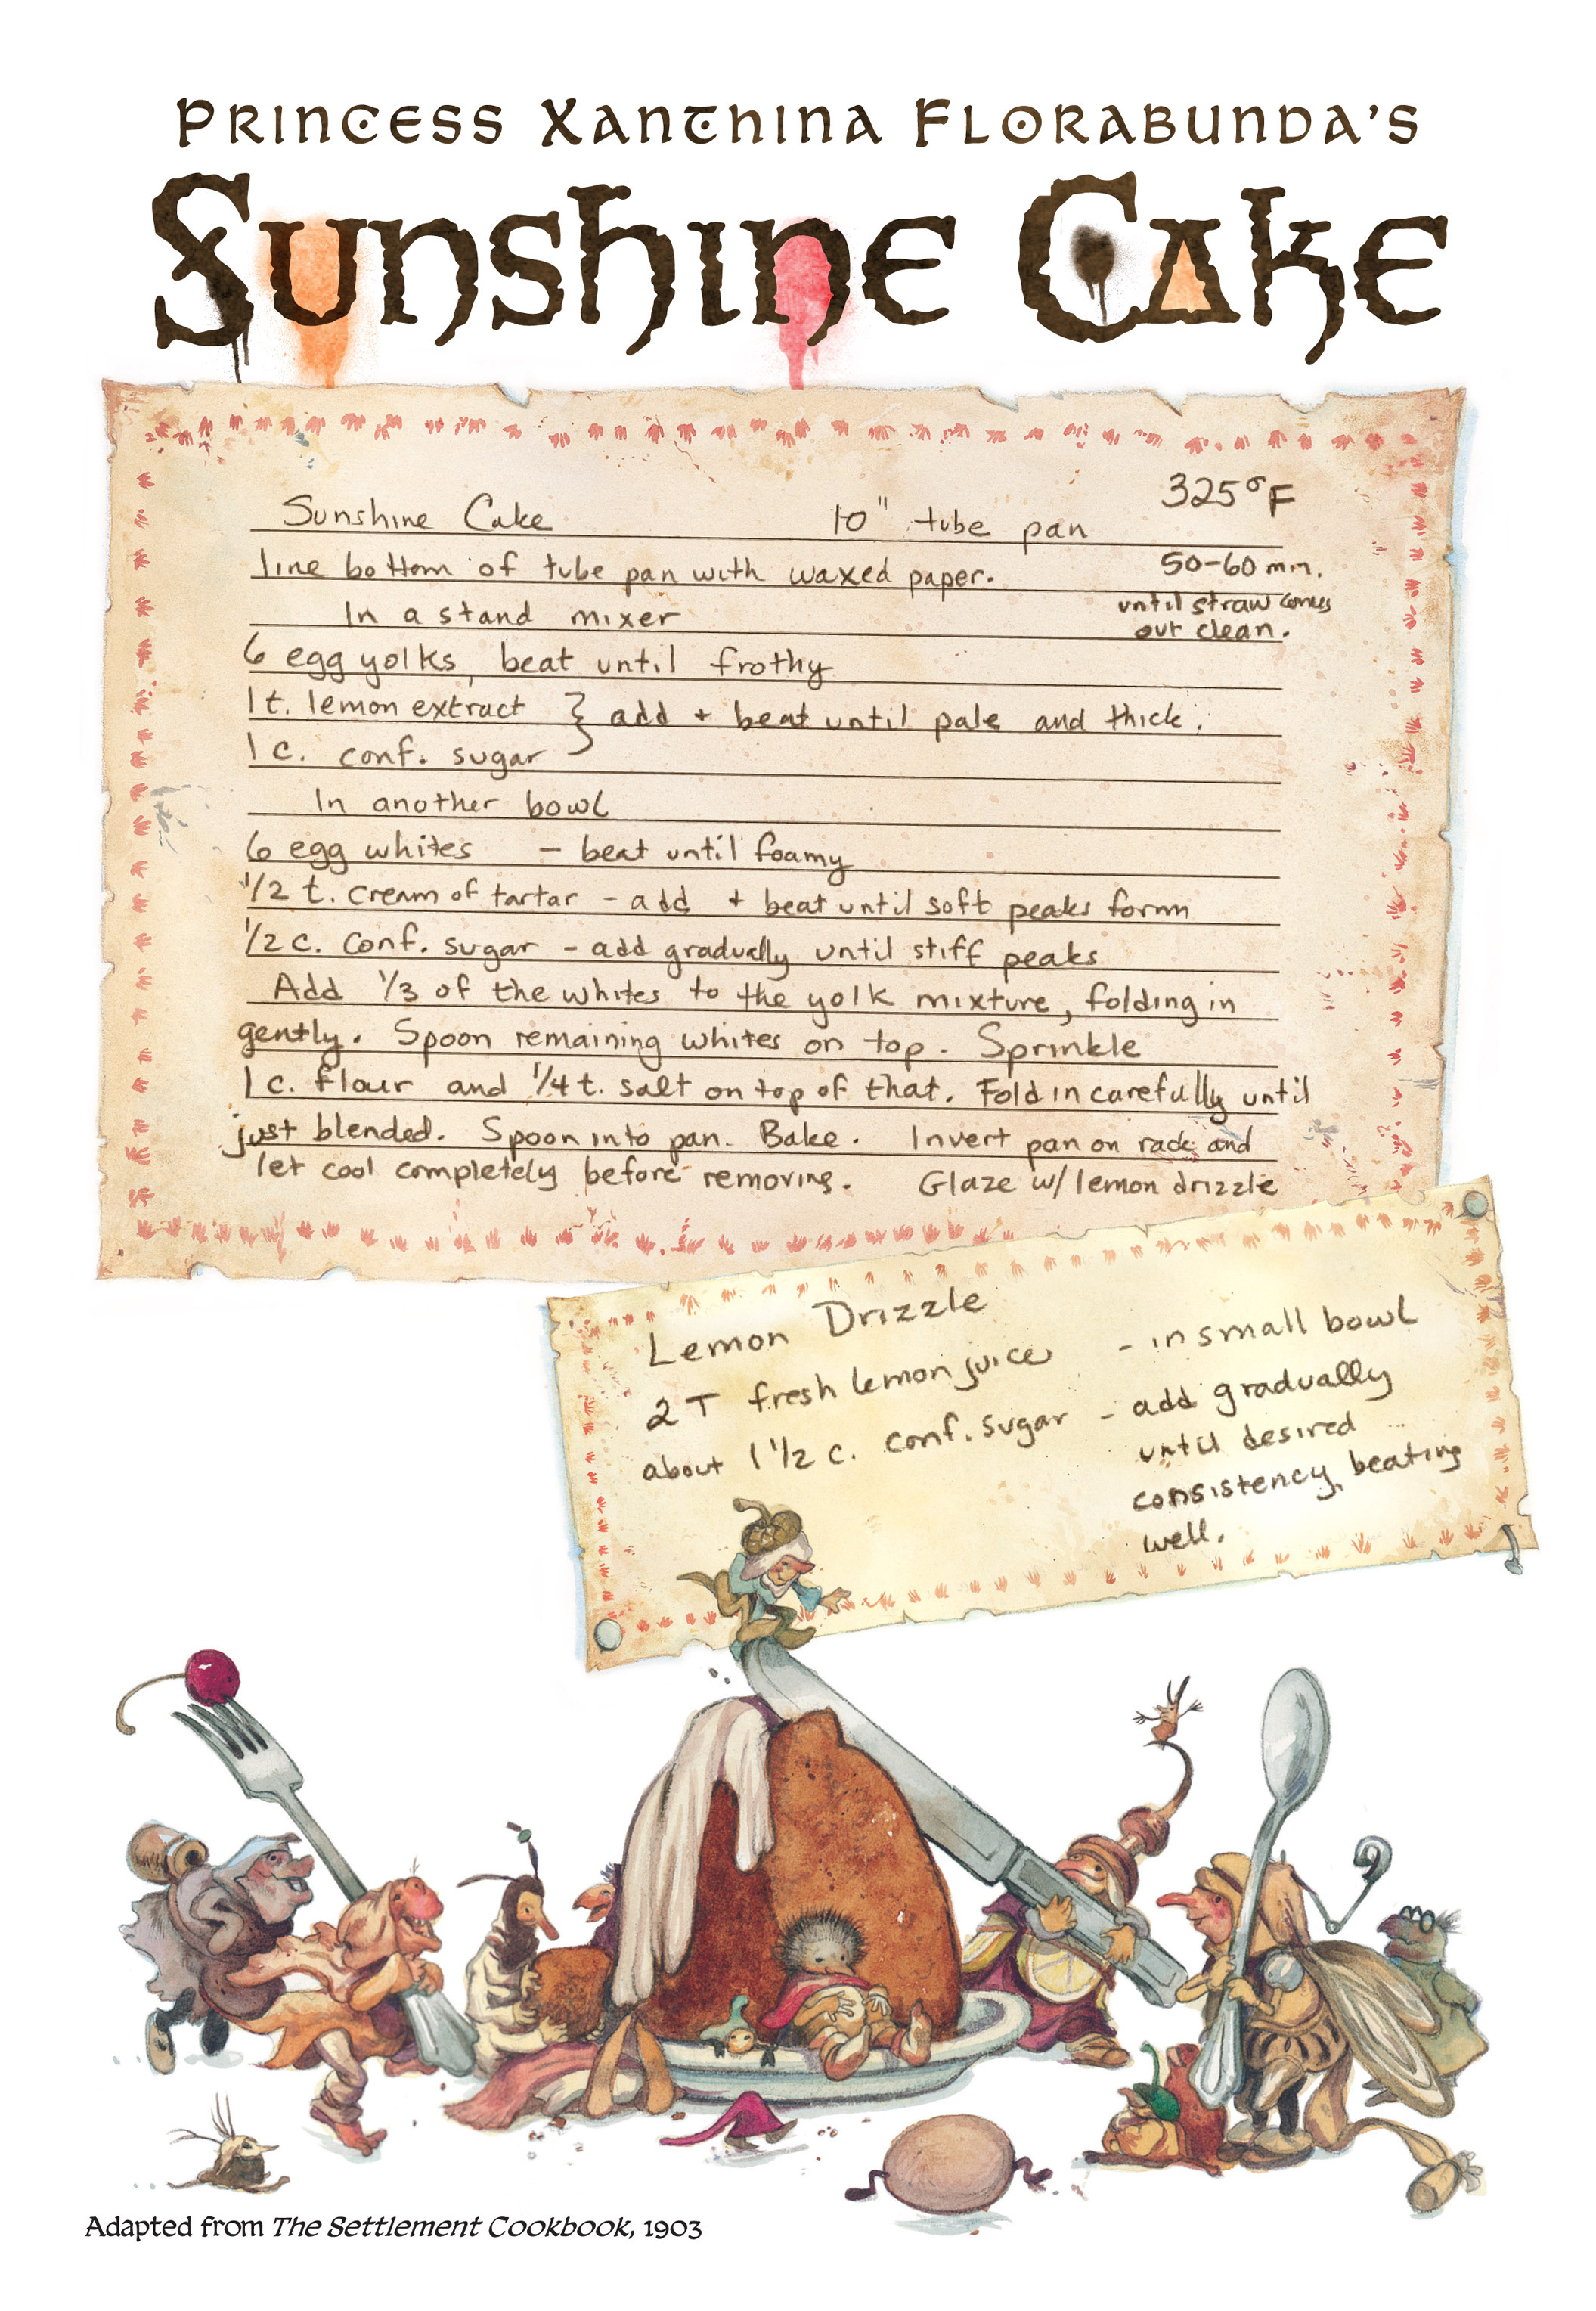 Princess Xanthina Florabunda's
Sunshine Cake
325°F
Sunshine Cake 10" tube pan
line bottom of tube pan with waxed paper.
50-60 min.
until straw comes
out clean.
In a stand mixer
6 egg yolks, beat until frothy
1 t. lemon extract } add + beat until pale and thick.
1 c. conf. sugar
In another bowl
6 egg whites - beat until foamy
1/2 t. cream of tartar - add + beat until soft peaks form
1/2 c. conf. sugar - add gradually until stiff peaks
Add 1/3 of the whites to the yolk mixture, folding in
gently. Spoon remaining whites on top. Sprinkle
1 c. flour and 1/4 t. salt on top of that. Fold in carefully until
just blended. Spoon into pan. Bake. Invert pan on rack and
let cool completely before removing. Glaze w/ lemon drizzle
Lemon Drizzle
2 T fresh lemon juice - in small bowl
about 1 1/2 c. conf. sugar - add gradually
until desired
consistency, beating
well.
Adapted from The Settlement Cookbook, 1903